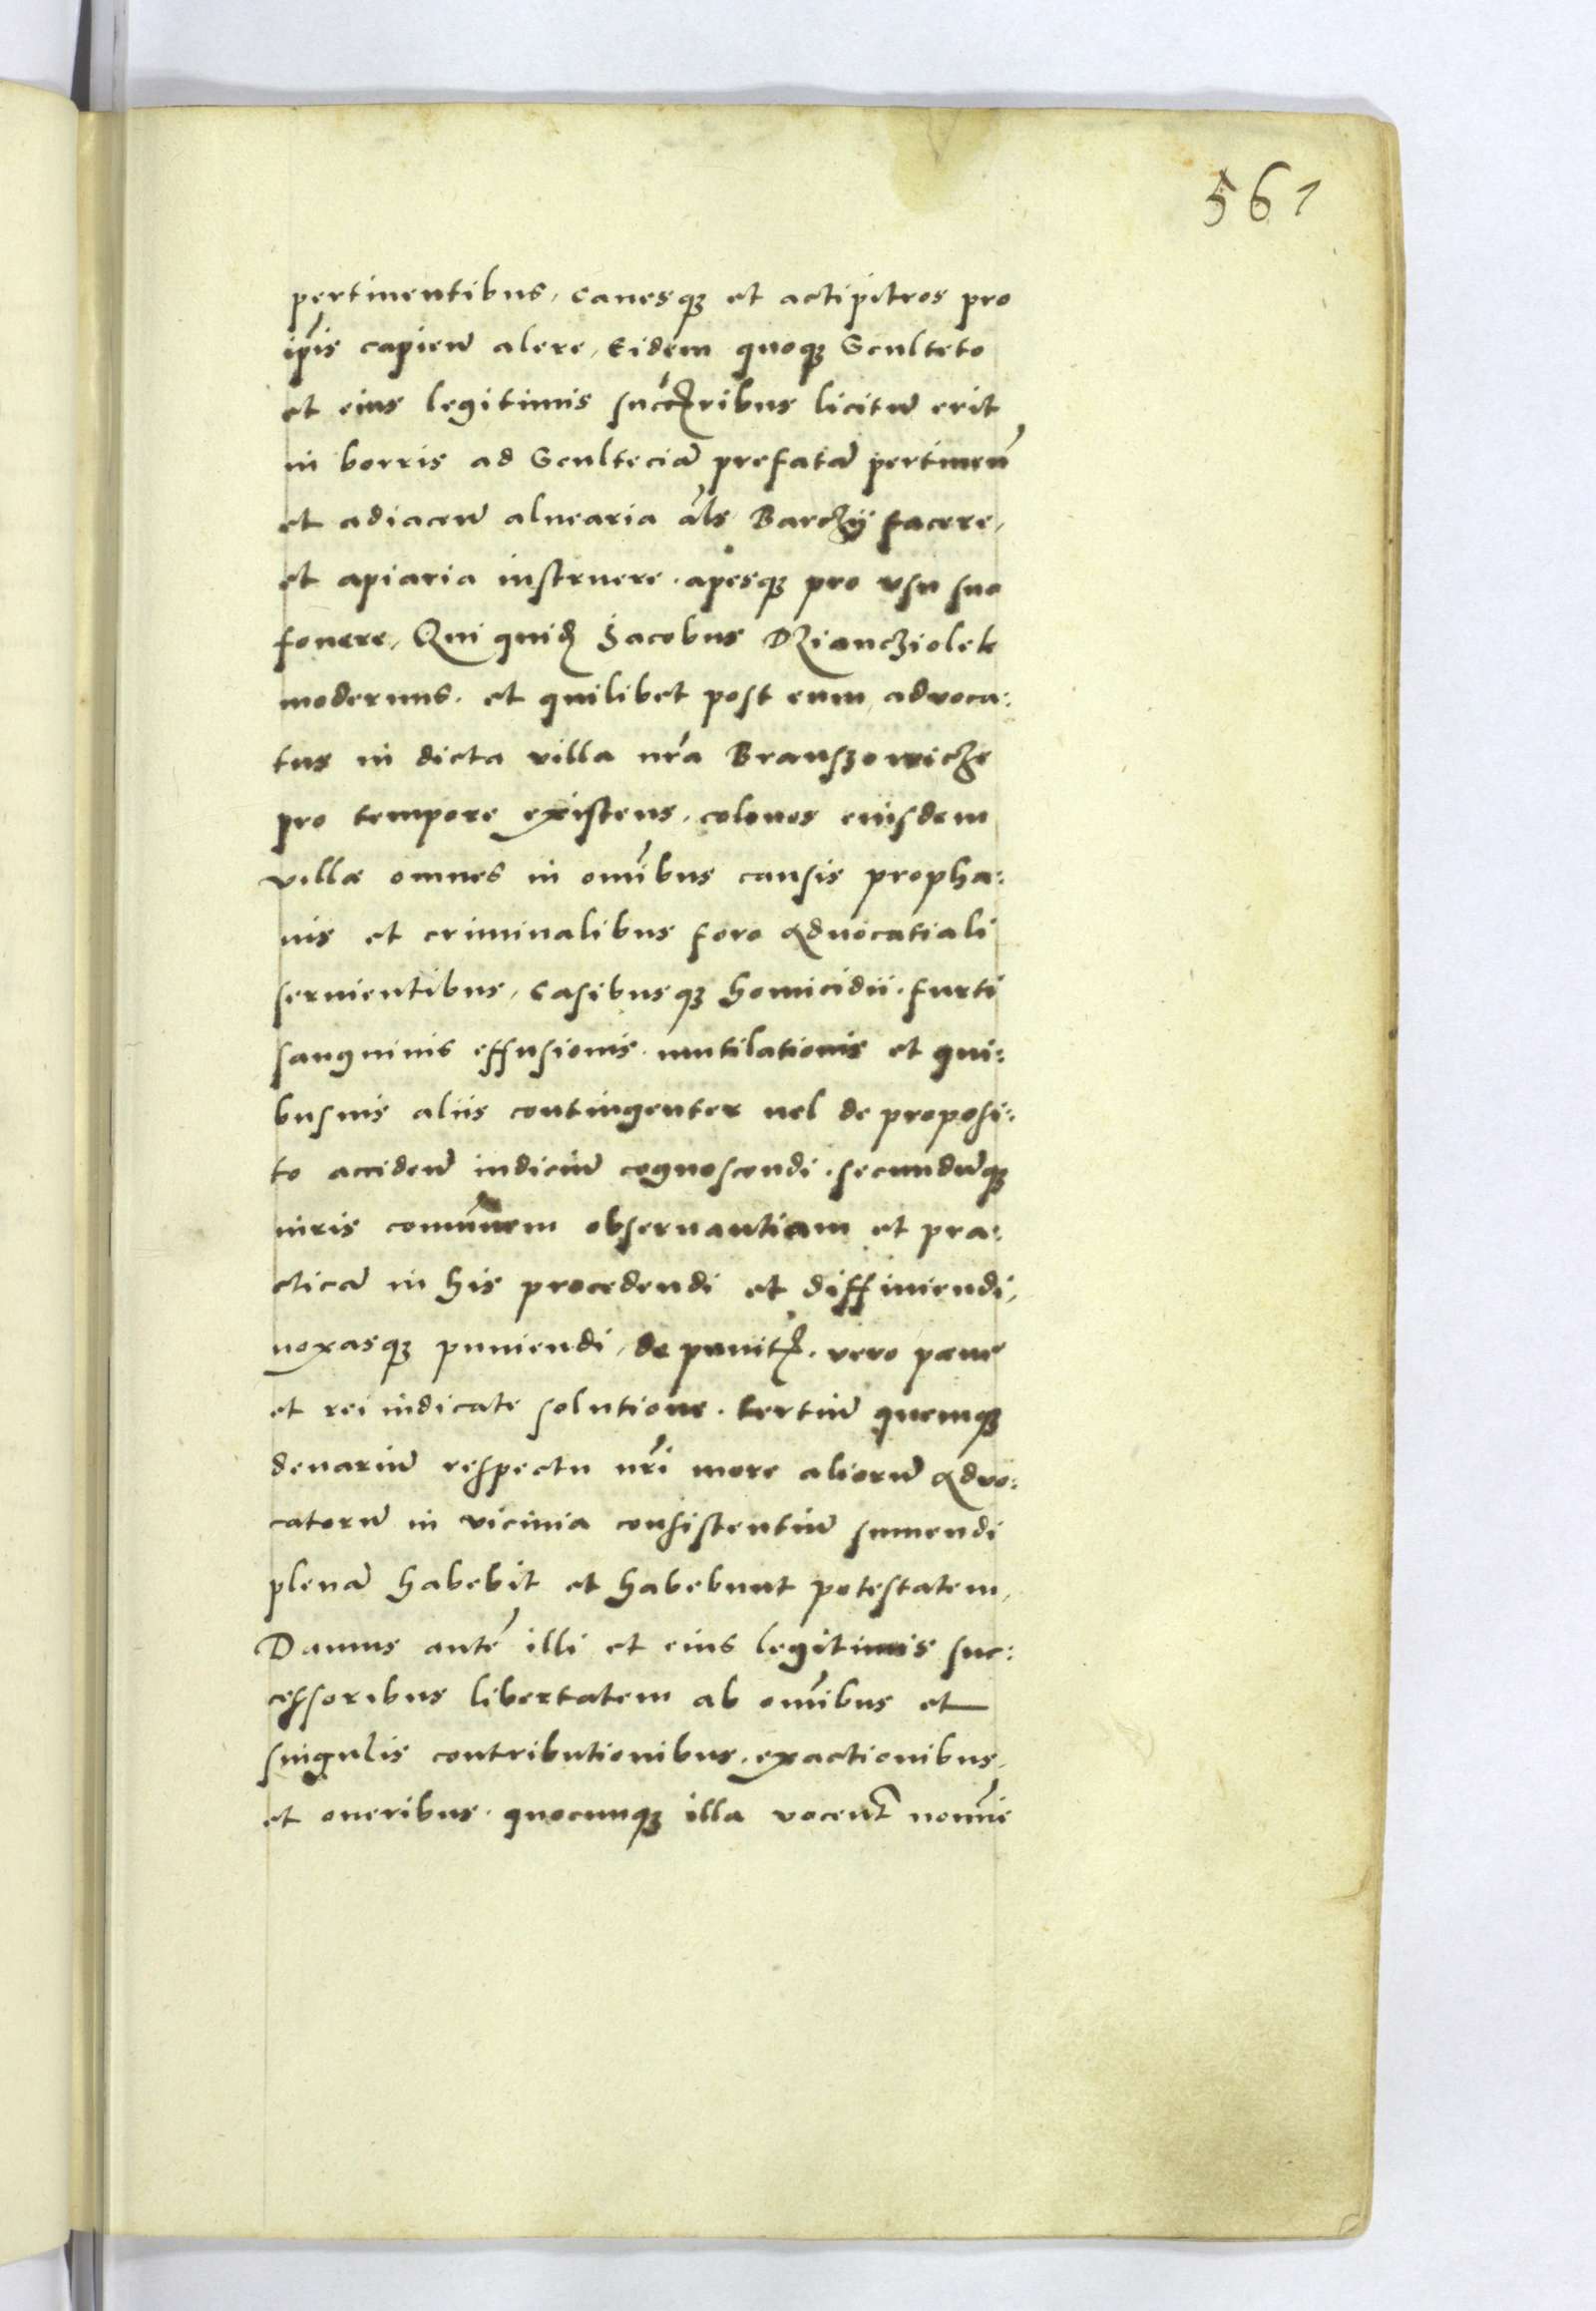 561
pertinentibus, canesqꝫ et actipitres pro
ip̃is capien̄ alere, Eidem quoqꝫ Sculteto
et eius legitimis succ̃ribus licitū erit
in borris ad Sculteciā prefatā pertinen̄
et adiacen̄ aluearia al̃s Barczÿ facere,
et apiaria instruere. apesqꝫ pro vsu suo
fouere, Qui quid̃ Jacobus Dziancziolek
modernus. et quilibet post eum advoca:
tus in dicta villa nr̃a Branszowicze
pro tempore existens. colonos eiusdem
villæ omnes in om̃ibus causis propha:
nis et criminalibus foro advocatiali
seruientibus, Casibusqꝫ homicidii. furti
sanguinis effusionis. mutilationis et qui:
busuis aliis contingenter uel de proposi:
to acciden̄ iudiciū cognoscendi. secundūqꝫ
iuris comūnem obseruantiam et pra:
cticā in his procedendi et diffiniendi,
noxasqꝫ puniendi, de vero pœne
et rei iudicate solutione. tertiū quemqꝫ
denariū respectu nr̃i more aliorū advo:
catorū in vicinia consistentiū sumendi
plenā habebit et habebunt potestatem,
Damus autē illi et eius legitimis suc:
cessoribus libertatem ab om̃ibus et
singulis contributionibus. exactionibus,
et oneribus. quocunqꝫ illa vocent̃ nomīe